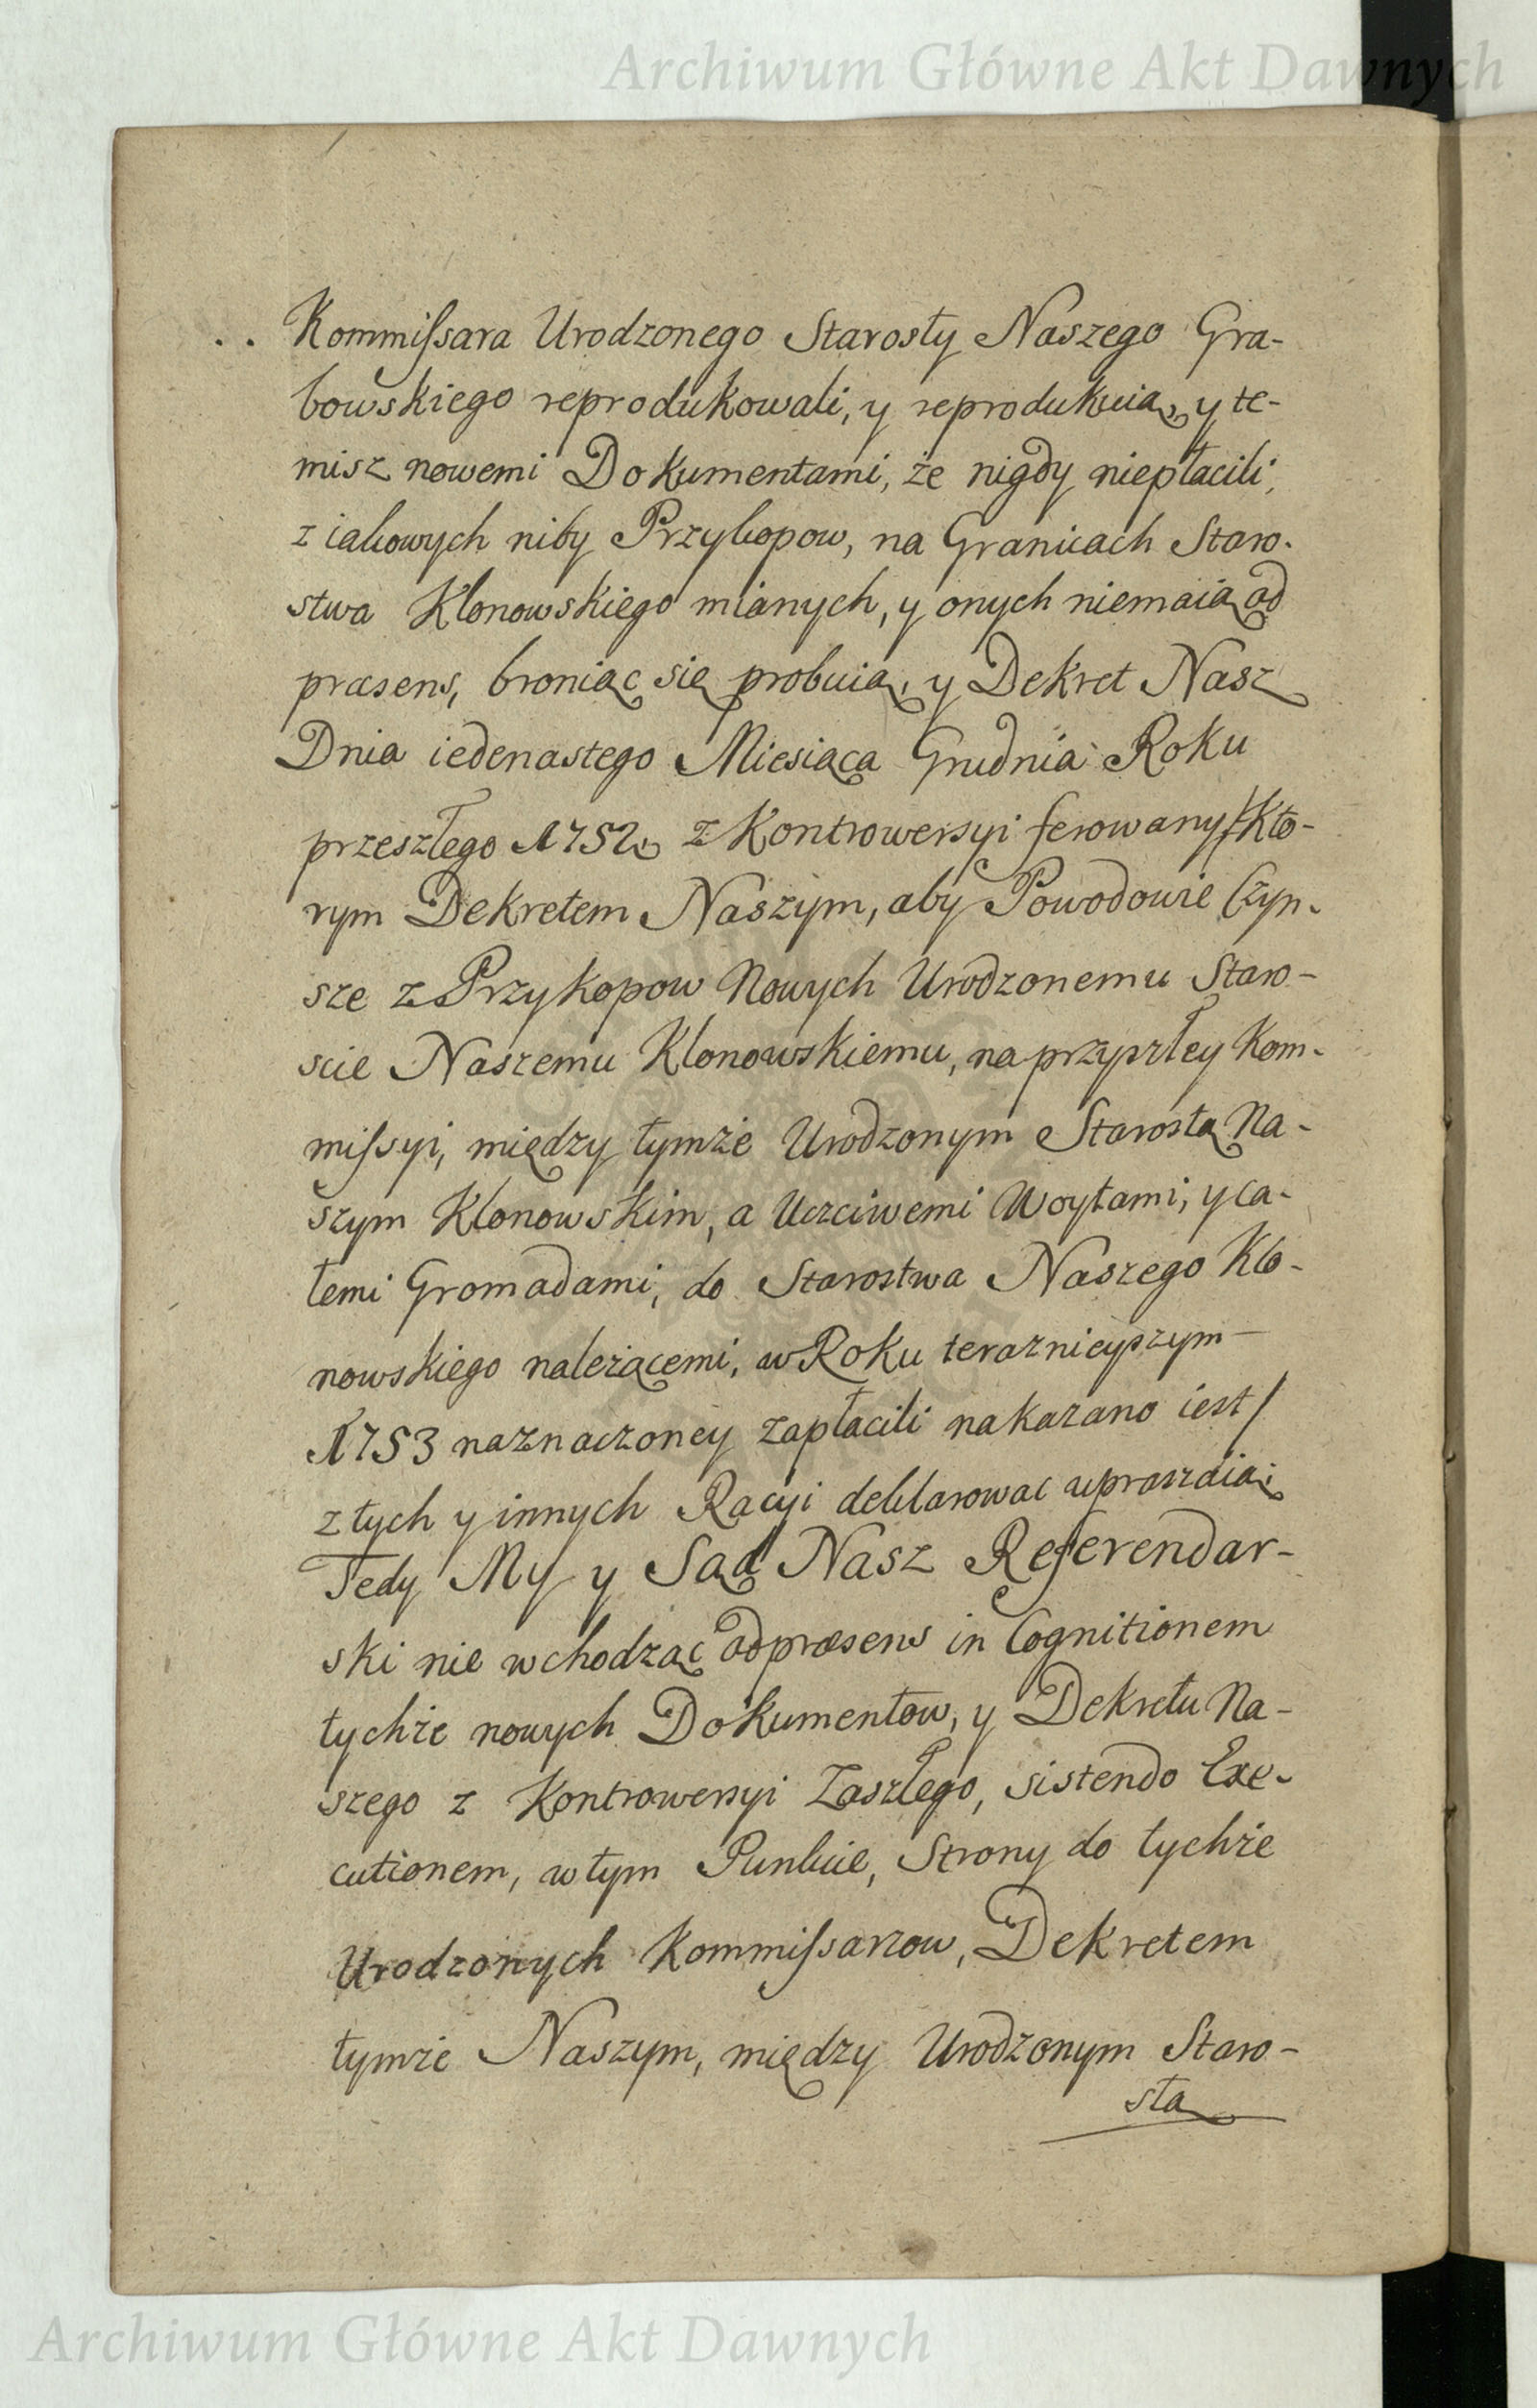 Archiwum Główne Akt Dawnych
Kommissara Urodzonego Starosty Naszego Gra-
bowskiego reprodukowali, y reprodukuią, y te-
misz nowemi Dokumentami, że nigdy niepłacili,
z iakowych niby Przykopow, na Granicach Staro-
stwa Klonowskiego mianych, y onych niemaią ad
præsens, broniąc się probuią, y Dekret Nasz
Dnia iedenastego Miesiąca Grudnia Roku
przeszłego 1752. z Kontrowersyi ferowany /Kto-
rym Dekretem Naszym, aby Powodowie Czyn-
sze z Przykopow Nowych Urodzonemu Staro-
scie Naszemu Klonowskiemu, na przyszłey Kom-
missyi, między tymże Urodzonym Starostą Na-
szym Klonowskim, a Uczciwemi Woytami, y ca-
łemi Gromadami, do Starostwa Naszego Klo-
nowskiego należącemi, w Roku teraznieyszym
1753 naznaczoney zapłacili nakazano iest/
z tych y innych Racyi deklarowac upraszaią;
Tedy My y Sąd Nasz Referendar-
ski nie wchodząc ad præsens in Cognitionem
tychże nowych Dokumentow, y Dekretu Na-
szego z Kontrowersyi Zaszłego, sistendo Exe-
cutionem, w tym Punkcie, Strony do tychże
Urodzonych Kommissarzow, Dekretem
tymże Naszym, między Urodzonym Staro-
stą
Archiwum Główne Akt Dawnych